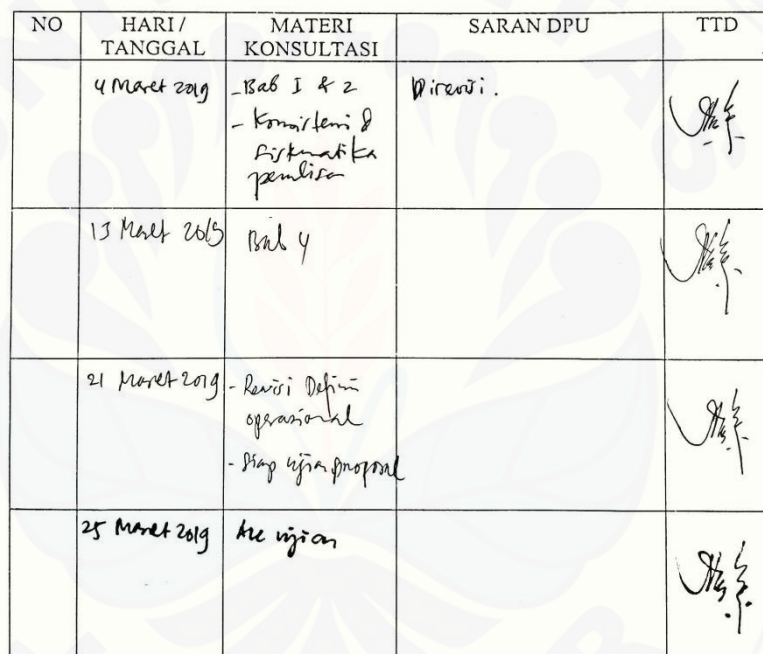 NO HARI / TANGGAL MATERI KONSULTASI SARAN DPU TTD
4 Maret 2019 - Bab I & 2 Direvisi.
- Konsistensi &
Sistematika
penulisan
13 Maret 2019 Bab 4
21 Maret 2019 - Revisi Definisi
operasional
- Siap ujian proposal
25 Maret 2019 Acc ujian